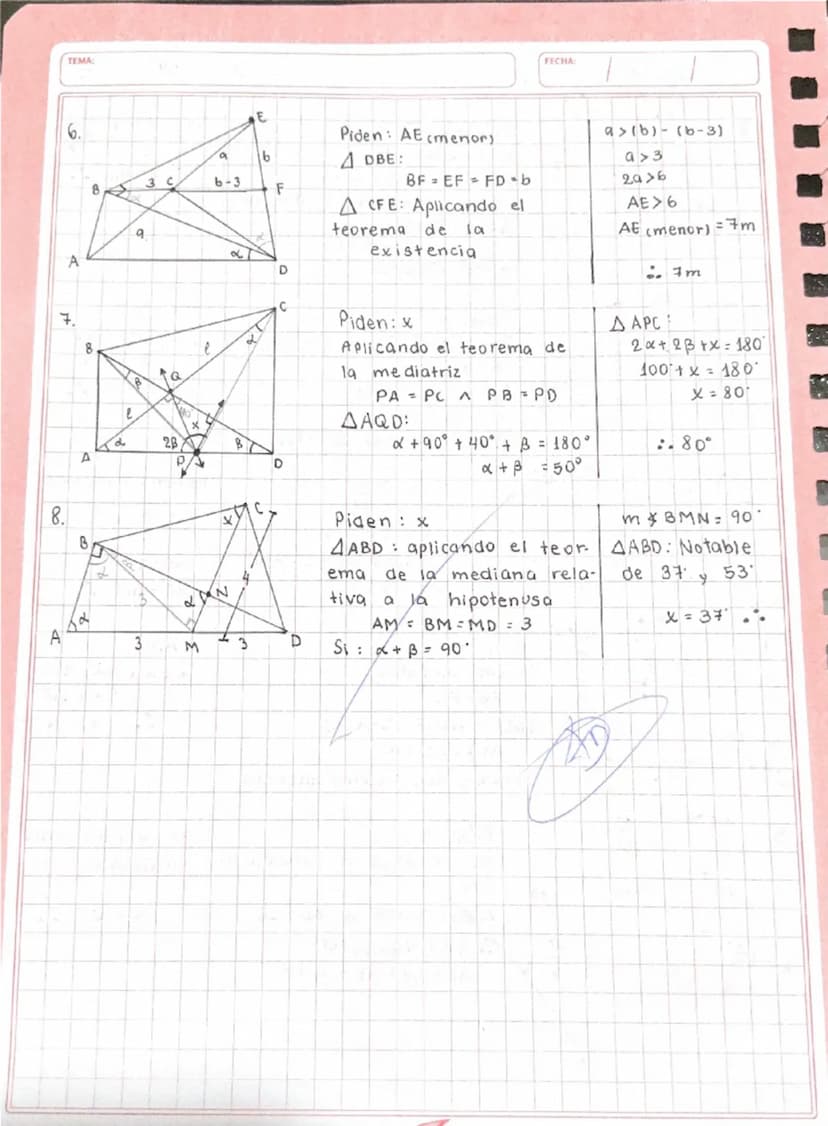 TEMA:
FECHA: / /
6.
E
a
b
B
3
C
b-3
F
a
A
α
D
Piden: AE(menor)
△ DBE:
BF = EF = FD = b
△ CFE: Aplicando el
teorema de la
existencia
a > (b) - (b-3)
a > 3
2a > 6
AE > 6
AE (menor) = 7m
∴ 7m
7.
C
α
B
l
Q
β
l
x
A
α
2β
β
P
D
Piden: x
Aplicando el teorema de
la mediatriz
PA = PC ∧ PB = PD
△AQD:
α + 90° + 40° + β = 180°
α + β = 50°
△ APC:
2α + 2β + x = 180°
100° + x = 180°
x = 80°
∴ 80°
8.
C
x
B
α
β
4
3
α
N
A
α
3
M
3
D
Piden: x
△ABD: aplicando el teor-
ema de la mediana rela-
tiva a la hipotenusa
AM = BM = MD = 3
Si: α + β = 90°
m∡BMN = 90°
△ABD: Notable
de 37° y 53°
x = 37° ∴
AD